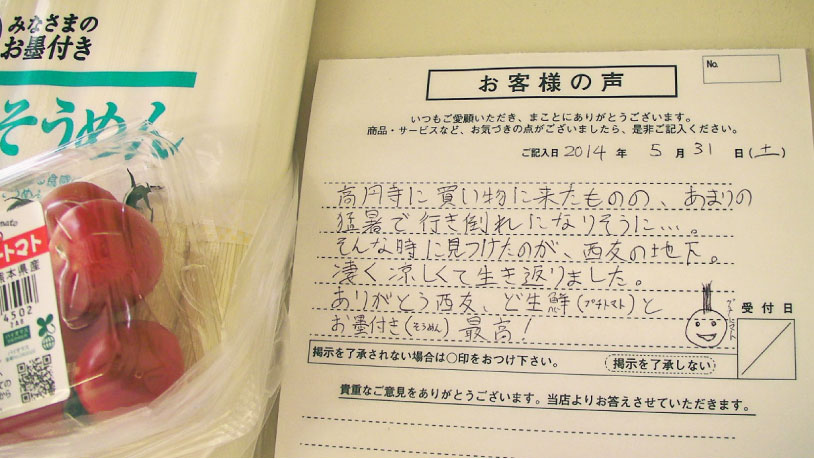 みなさまの
お墨付き
そうめん
トマト
熊本県産
4502
お客様の声
No.
いつもご愛顧いただき、まことにありがとうございます。
商品・サービスなど、お気づきの点がございましたら、是非ご記入ください。
ご記入日 2014 年 5 月 31 日 (土)
高円寺に買い物に来たものの、あまりの
猛暑で行き倒れになりそうに…。
そんな時に見つけたのが、西友の地下。
凄く涼しくて生き返りました。
ありがとう西友、ど生鮮(プチトマト)と
お墨付き(そうめん)最高!
受付日
掲示を了承されない場合は○印をおつけ下さい。
掲示を了承しない
貴重なご意見をありがとうございます。当店よりお答えさせていただきます。